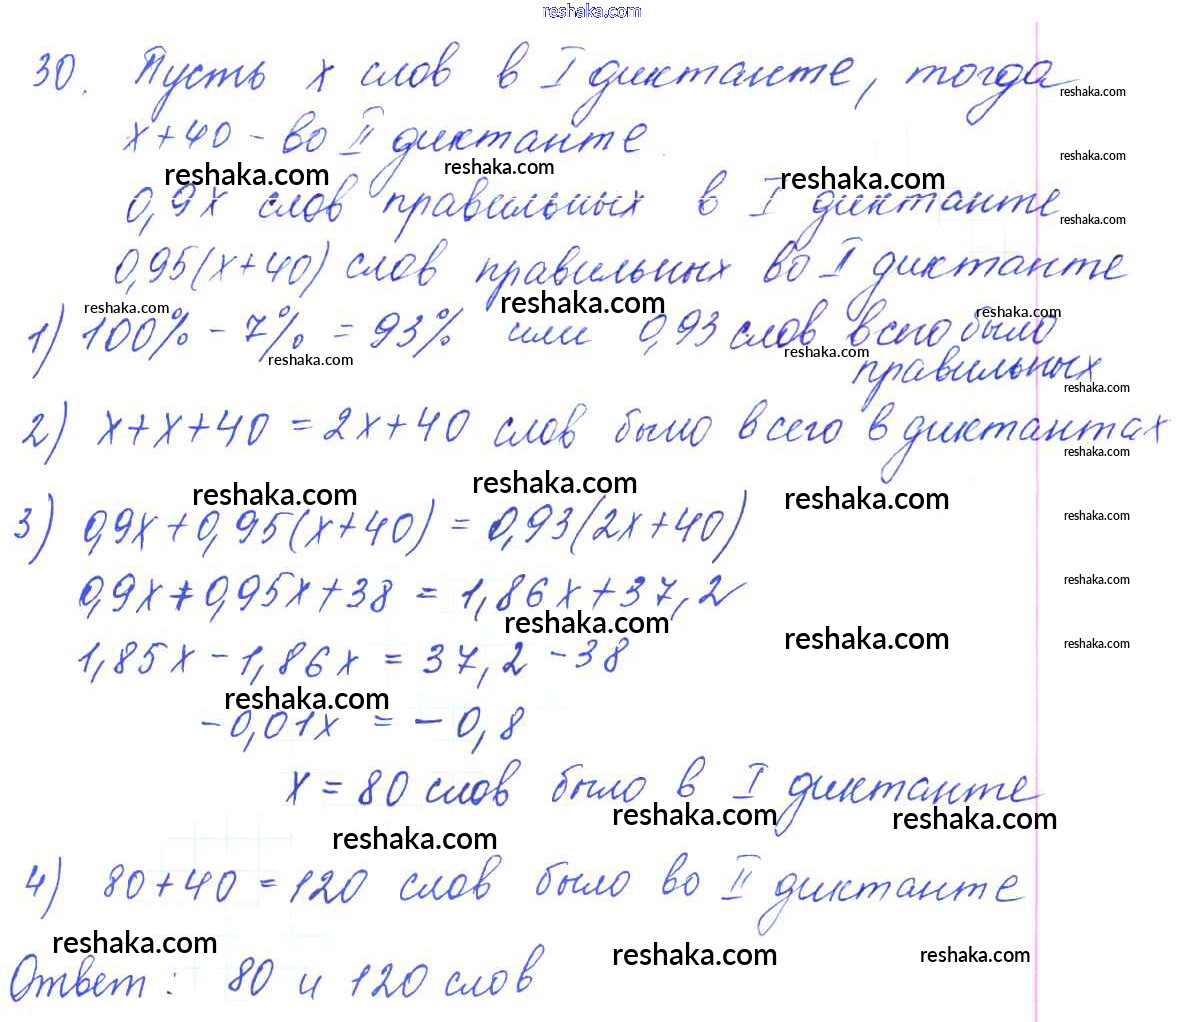 reshaka.com
30. Пусть x слов в I диктанте, тогда
reshaka.com
x+40 - во II диктанте
reshaka.com
reshaka.com reshaka.com reshaka.com
0,9x слов правильных в I диктанте
reshaka.com
0,95(x+40) слов правильных во II диктанте
reshaka.com reshaka.com reshaka.com
1) 100% - 7% = 93% или 0,93 слов всего было
reshaka.com reshaka.com
правильных
reshaka.com
2) x+x+40 = 2x+40 слов было всего в диктантах
reshaka.com
reshaka.com reshaka.com reshaka.com
reshaka.com
3) 0,9x+0,95(x+40) = 0,93(2x+40)
reshaka.com
0,9x+0,95x+38 = 1,86x+37,2
reshaka.com reshaka.com reshaka.com
1,85x - 1,86x = 37,2 - 38
reshaka.com
-0,01x = -0,8
x = 80 слов было в I диктанте
reshaka.com reshaka.com
reshaka.com
4) 80+40 = 120 слов было во II диктанте
reshaka.com reshaka.com reshaka.com
Ответ: 80 и 120 слов